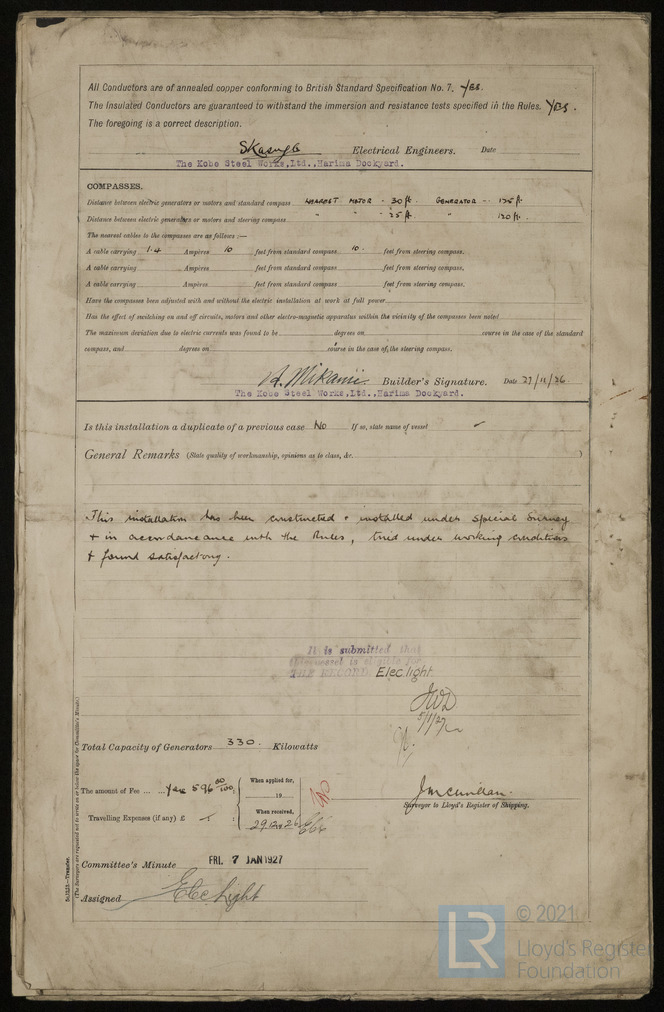 All Conductors are of annealed copper conforming to British Standard Specification No. 7. Yes.
The Insulated Conductors are guaranteed to withstand the immersion and resistance tests specified in the Rules. Yes.
The foregoing is a correct description.
Electrical Engineers. Date
The Kobe Steel Works,Ltd.,Harima Dockyard.
COMPASSES.
Distance between electric generators or motors and standard compass NEAREST MOTOR - 30 ft. GENERATOR - 125 ft.
Distance between electric generators or motors and steering compass " " 25 ft. " 120 ft.
The nearest cables to the compasses are as follows :—
A cable carrying 1.4 Ampères 10 feet from standard compass 10. feet from steering compass.
A cable carrying Ampères feet from standard compass feet from steering compass.
A cable carrying Ampères feet from standard compass feet from steering compass.
Have the compasses been adjusted with and without the electric installation at work at full power
Has the effect of switching on and off circuits, motors and other electro-magnetic apparatus within the vicinity of the compasses been noted
The maximum deviation due to electric currents was found to be degrees on course in the case of the standard
compass, and degrees on course in the case of the steering compass.
H. Mikami Builder's Signature. Date 27/11/26
The Kobe Steel Works,Ltd.,Harima Dockyard.
Is this installation a duplicate of a previous case No If so, state name of vessel -
General Remarks (State quality of workmanship, opinions as to class, &c. )
This installation has been constructed & installed under Special Survey
& in accordance with the Rules, tried under working conditions
& found satisfactory.
It is submitted that
this vessel is eligible for
THE RECORD Elec. light.
JWD
5/1/27
Total Capacity of Generators 330. Kilowatts
The amount of Fee ... ... Yen 596 00/100
When applied for,
19
Travelling Expenses (if any) £ -
When received,
29.12.26
Surveyor to Lloyd's Register of Shipping.
Committee's Minute FRI. 7 JAN 1927
Assigned Elec Light
(The Surveyors are requested not to write on or below the space for Committee's Minute.)
© 2021
LR
Lloyd's Register
Foundation